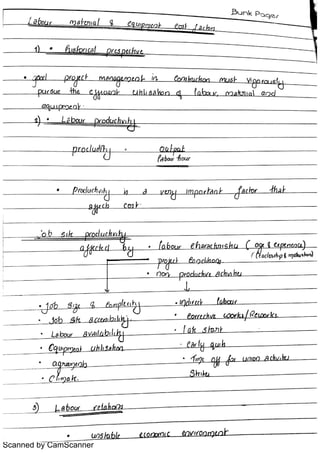 Bunk Pages
Labour material & equipment cost factors
1) • historical prespective
• goal project management in construction must vigorously
pursue the efficient utilisation of labour, material and
equipment.
2) • Labour productivity
productivity = output
labour hour
• Productivity is a very important factor that
affects cost.
Job site productivity
affected by • labour characteristic (age & experience)
(leadership & motivation)
project conditions
• non productive activities
• Job size & complexity
• Job site accessibility
• Labour availability
• Equipment utilisation
• agreements
• Climate.
• indirect labour
• corrective works/Reworks
• late start
• early quit
• Time off for union activities
Strike
3) Labour relations
• unstable economic environment
Scanned by CamScanner